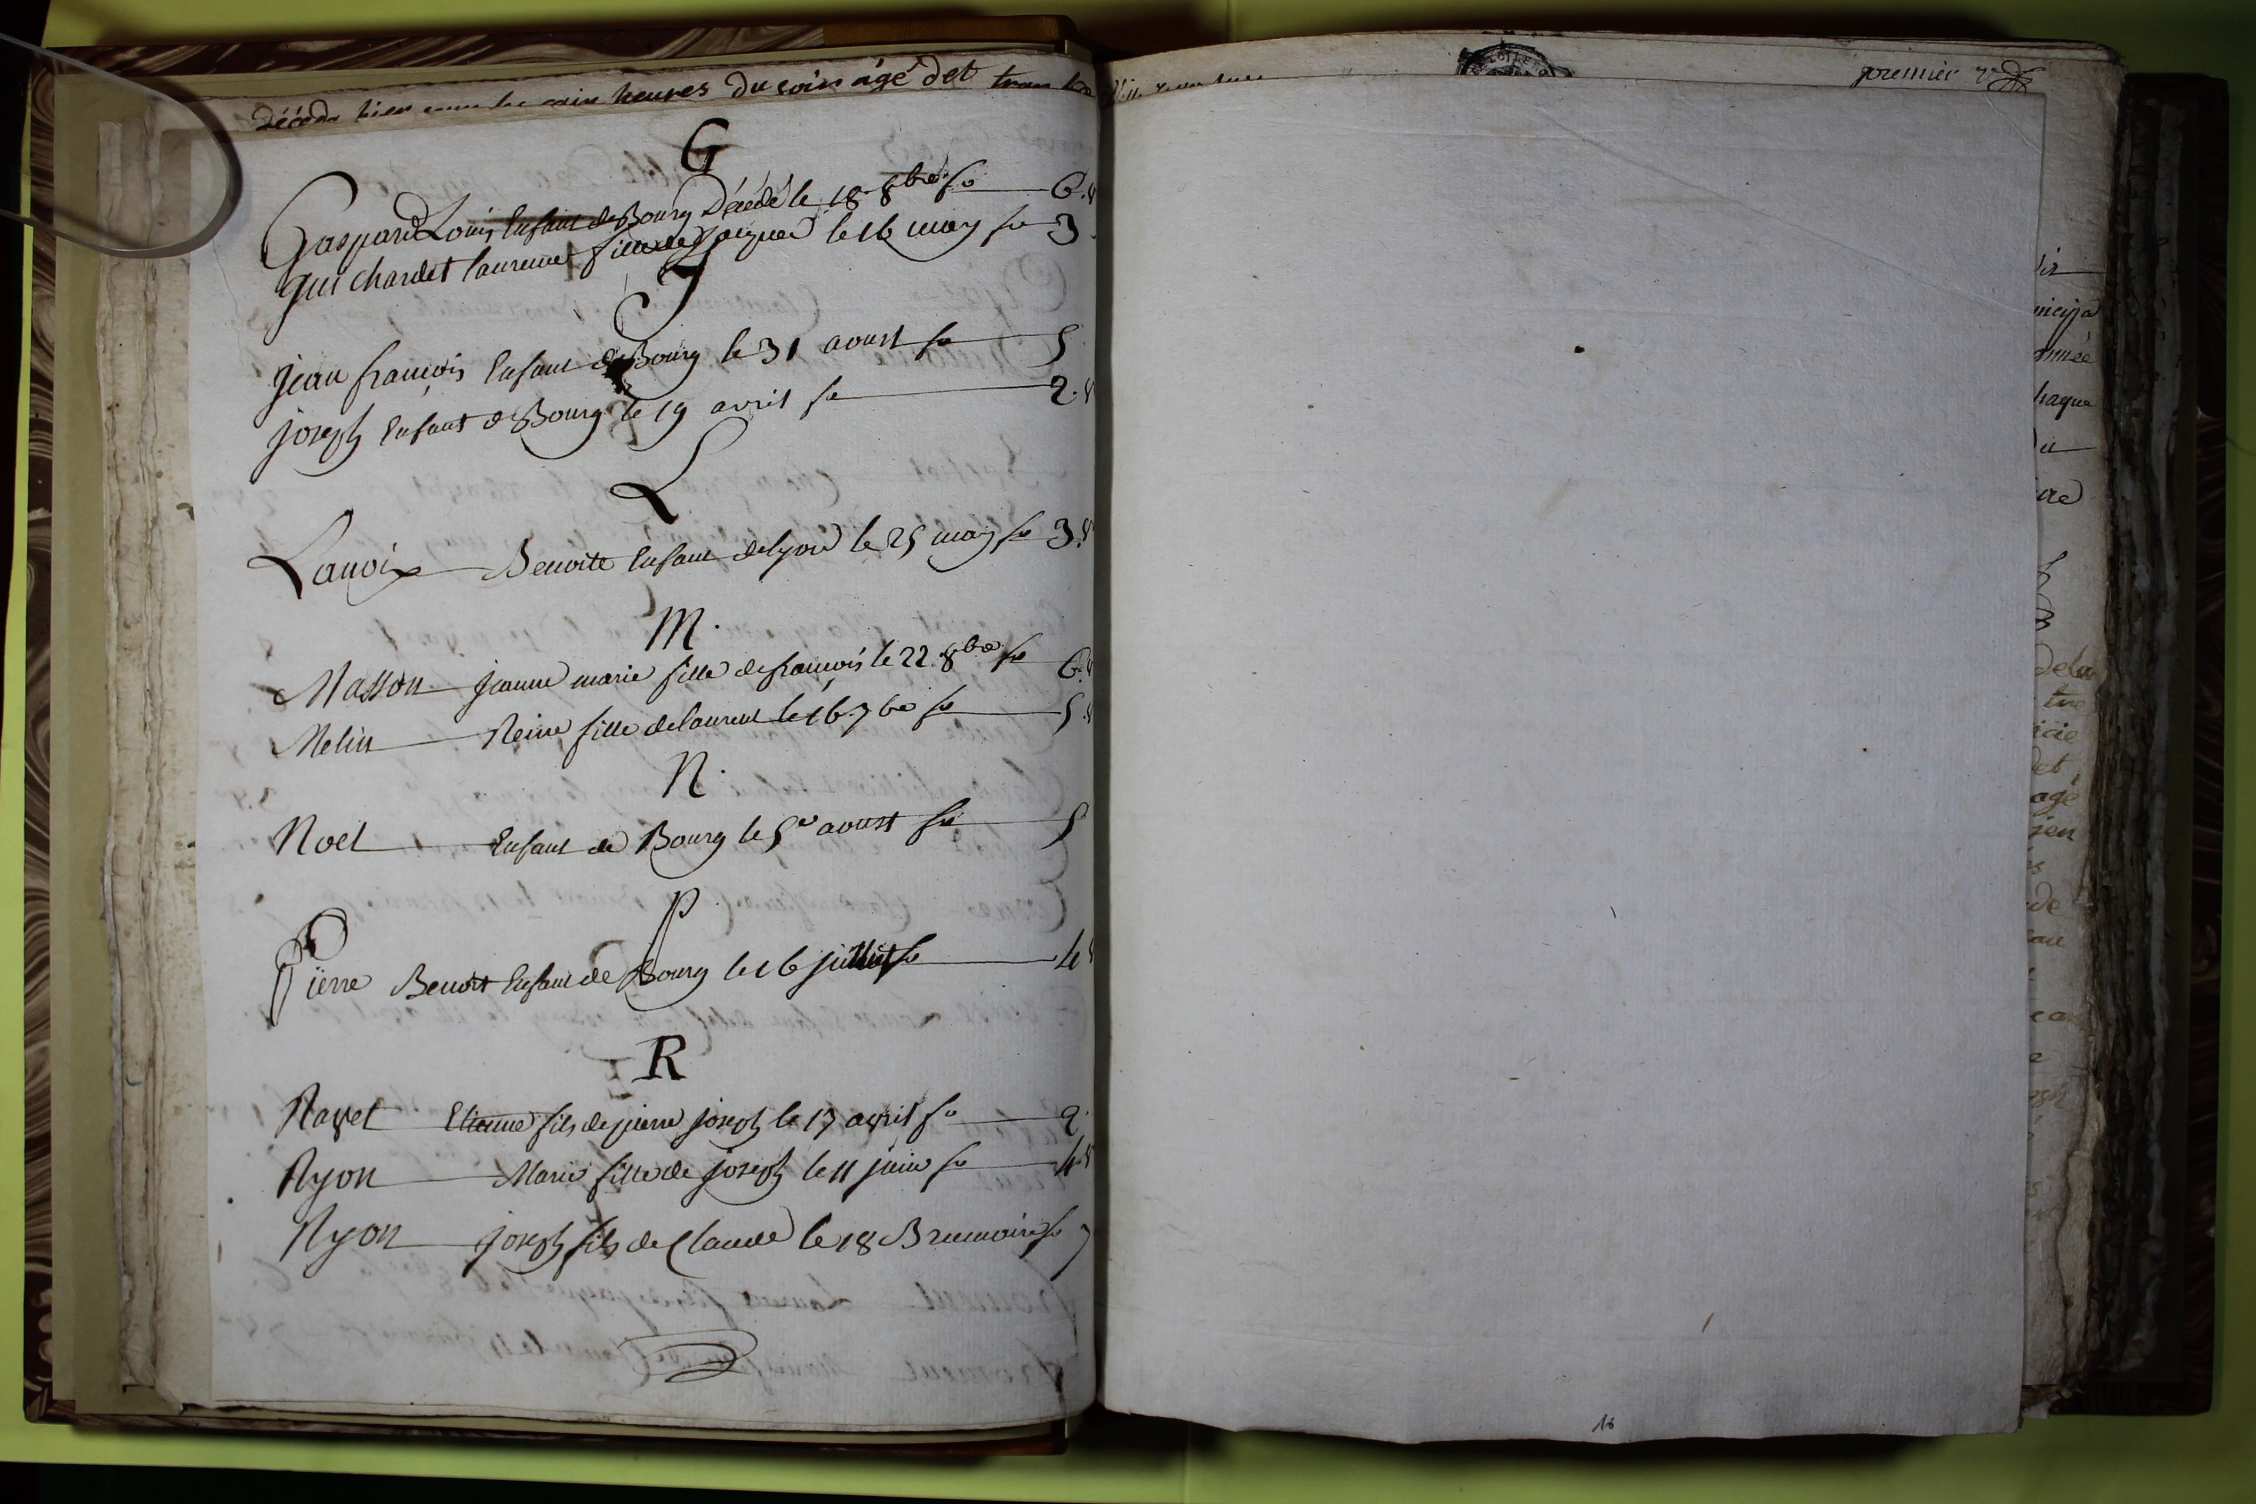 heures du soir agé det
premier
G
Gaspard Louis Enfant de Bourg Décédé le 18 8bre fo 6.
Guichardet laurence fille de jacques le 16 may fo 3
J
Jean françois Enfant de Bourg le 31 aoust fo 5
joseph Enfant de Bourg le 19 avril fo 2.
L
Lavoix Benoite Enfant de lyon le 25 may fo 3.
M.
Masson jeanne marie fille de françois le 22. 8bre fo 6.
Melin Reine fille de laurent le 16. 7bre fo 5.
N.
Noel Enfant de Bourg le 5e aoust fo 5
P
Pierre Benoit Enfant de Bourg le 16 juillet fo 4
R
Ravet Etienne fils de pierre joseph le 17 avril fo 2
Ryon Marie fille de joseph le 11 juin fo 4
Ryon joseph fils de Claude le 18 Brumaire fo 7
16